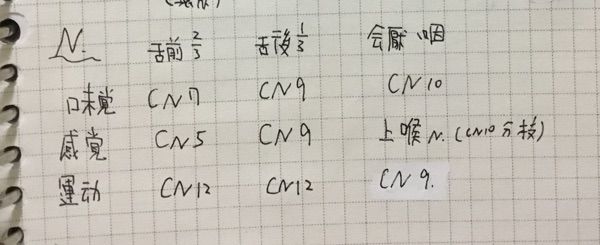 N. 舌前 2/3 舌後 1/3 会厭 咽
味覚 CN7 CN9 CN10
感覚 CN5 CN9 上喉 N. (CN10 分枝)
運动 CN12 CN12 CN 9.